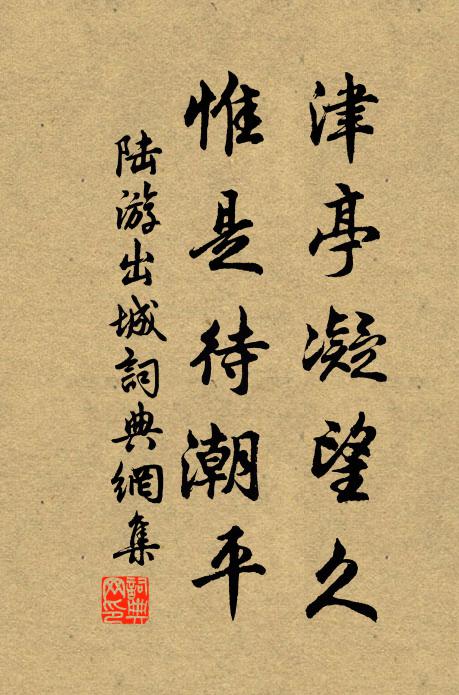 津亭凝望久
惟是待潮平
陆游出城詞典網集
詞典网印